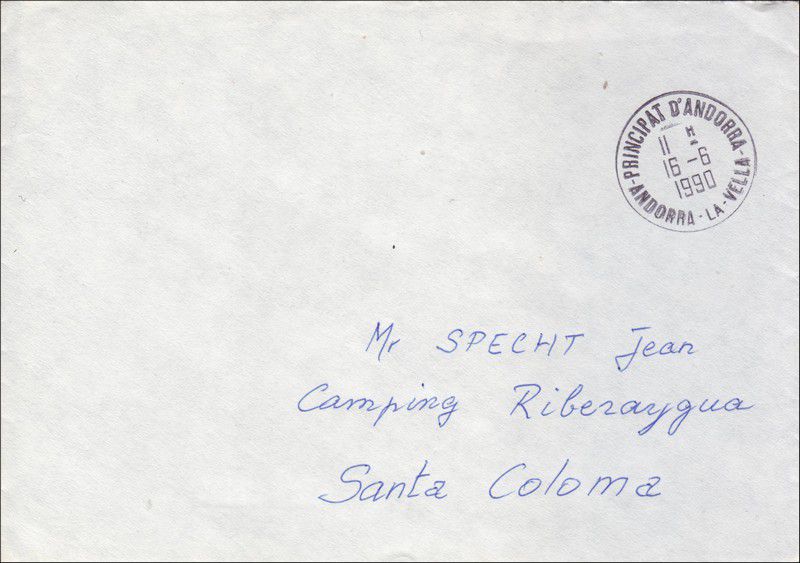 PRINCIPAT D'ANDORRA
11 H
16 - 6
1990
-ANDORRA-LA-VELLA-
Mr SPECHT Jean
Camping Riberaygua
Santa Coloma